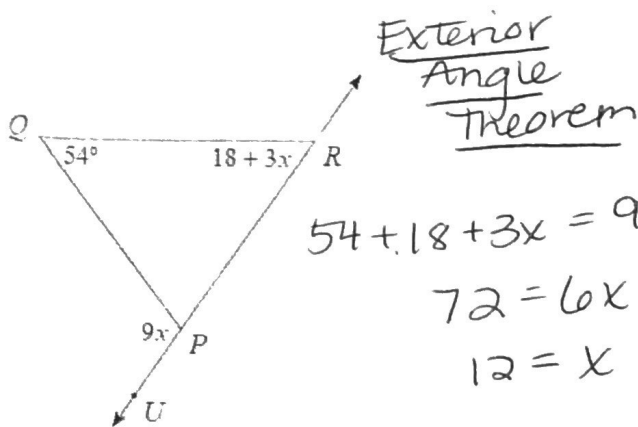 Exterior
Angle
Theorem
Q
54°
18 + 3x
R
54 + 18 + 3x = 9
72 = 6x
12 = x
9x
P
U